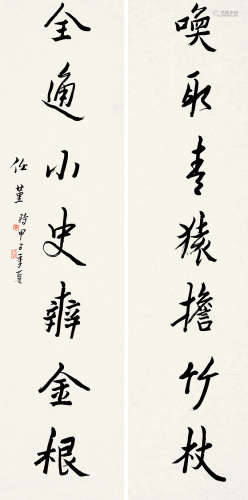 喚取青猿擔竹杖
全通小史辨金根
任堇 時甲子季夏